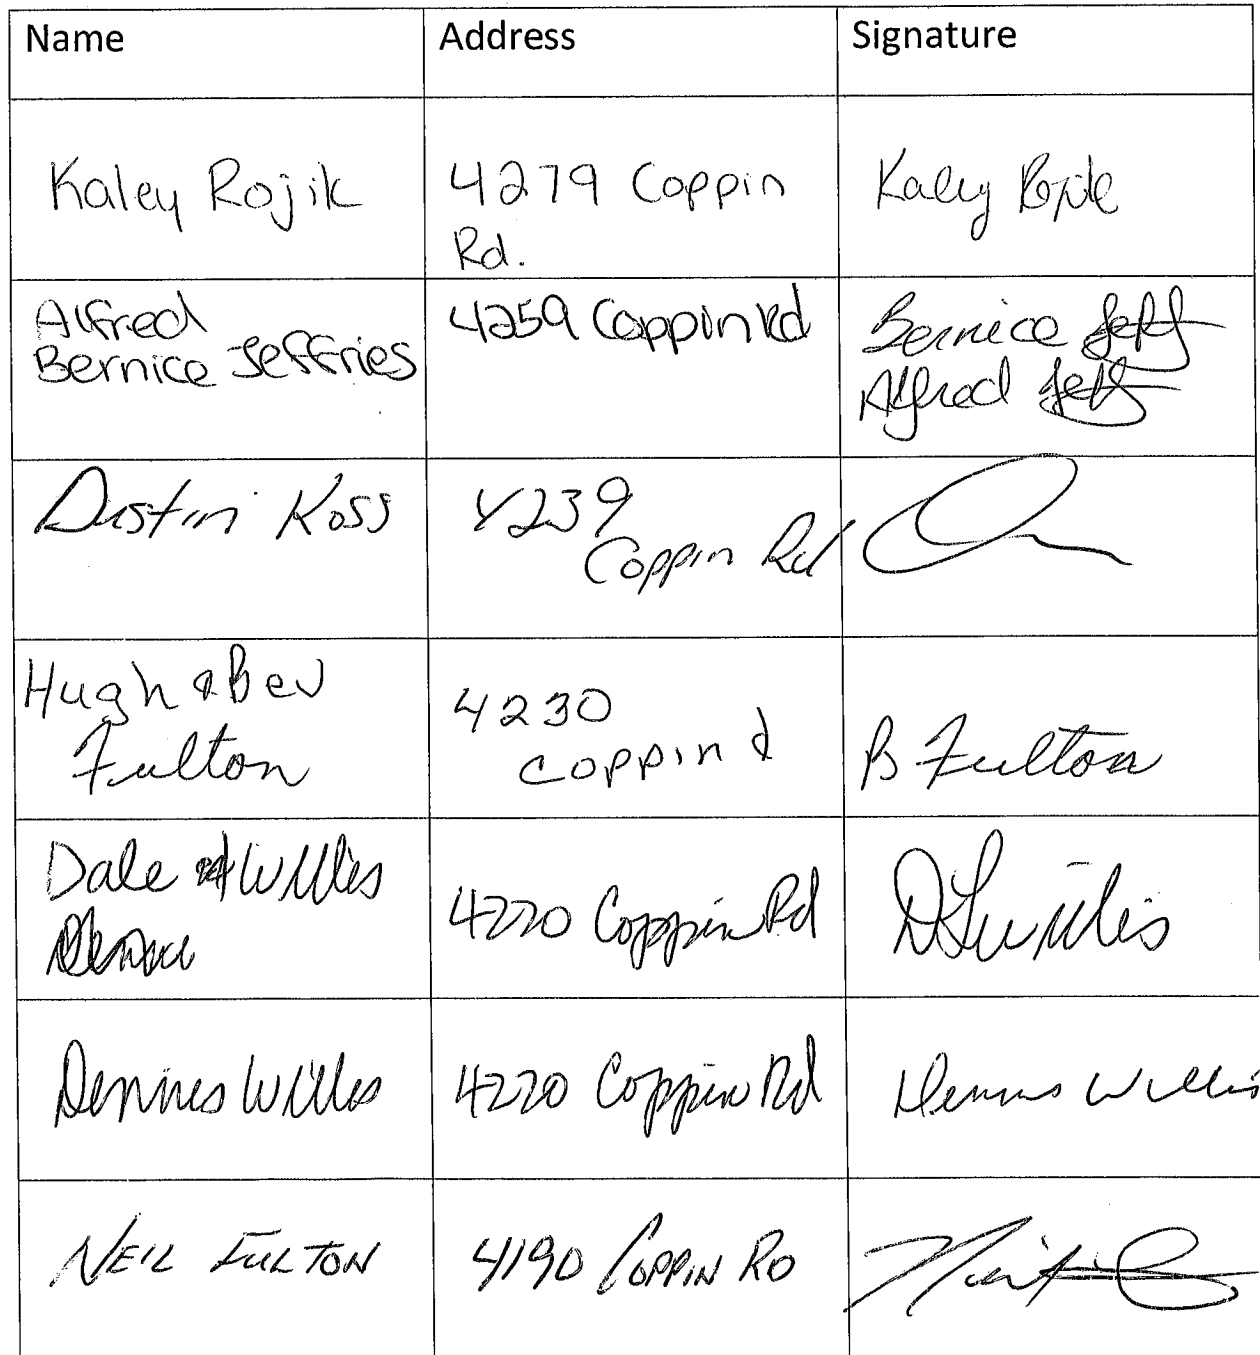 Name Address Signature
Kaley Rojik 4279 Coppin Kaley Rojik
Rd.
Alfred 4259 Coppin Rd Bernice Jeff
Bernice Jeffries Alfred Jeff
Dustin Koss 4239
Coppin Rd
Hugh & Bev 4230
Fulton Coppin d B Fulton
Dale Willis 4220 Coppin Rd DL Willis
Dennis Willis 4220 Coppin Rd Dennis Willis
NEIL FULTON 4190 COPPIN RD